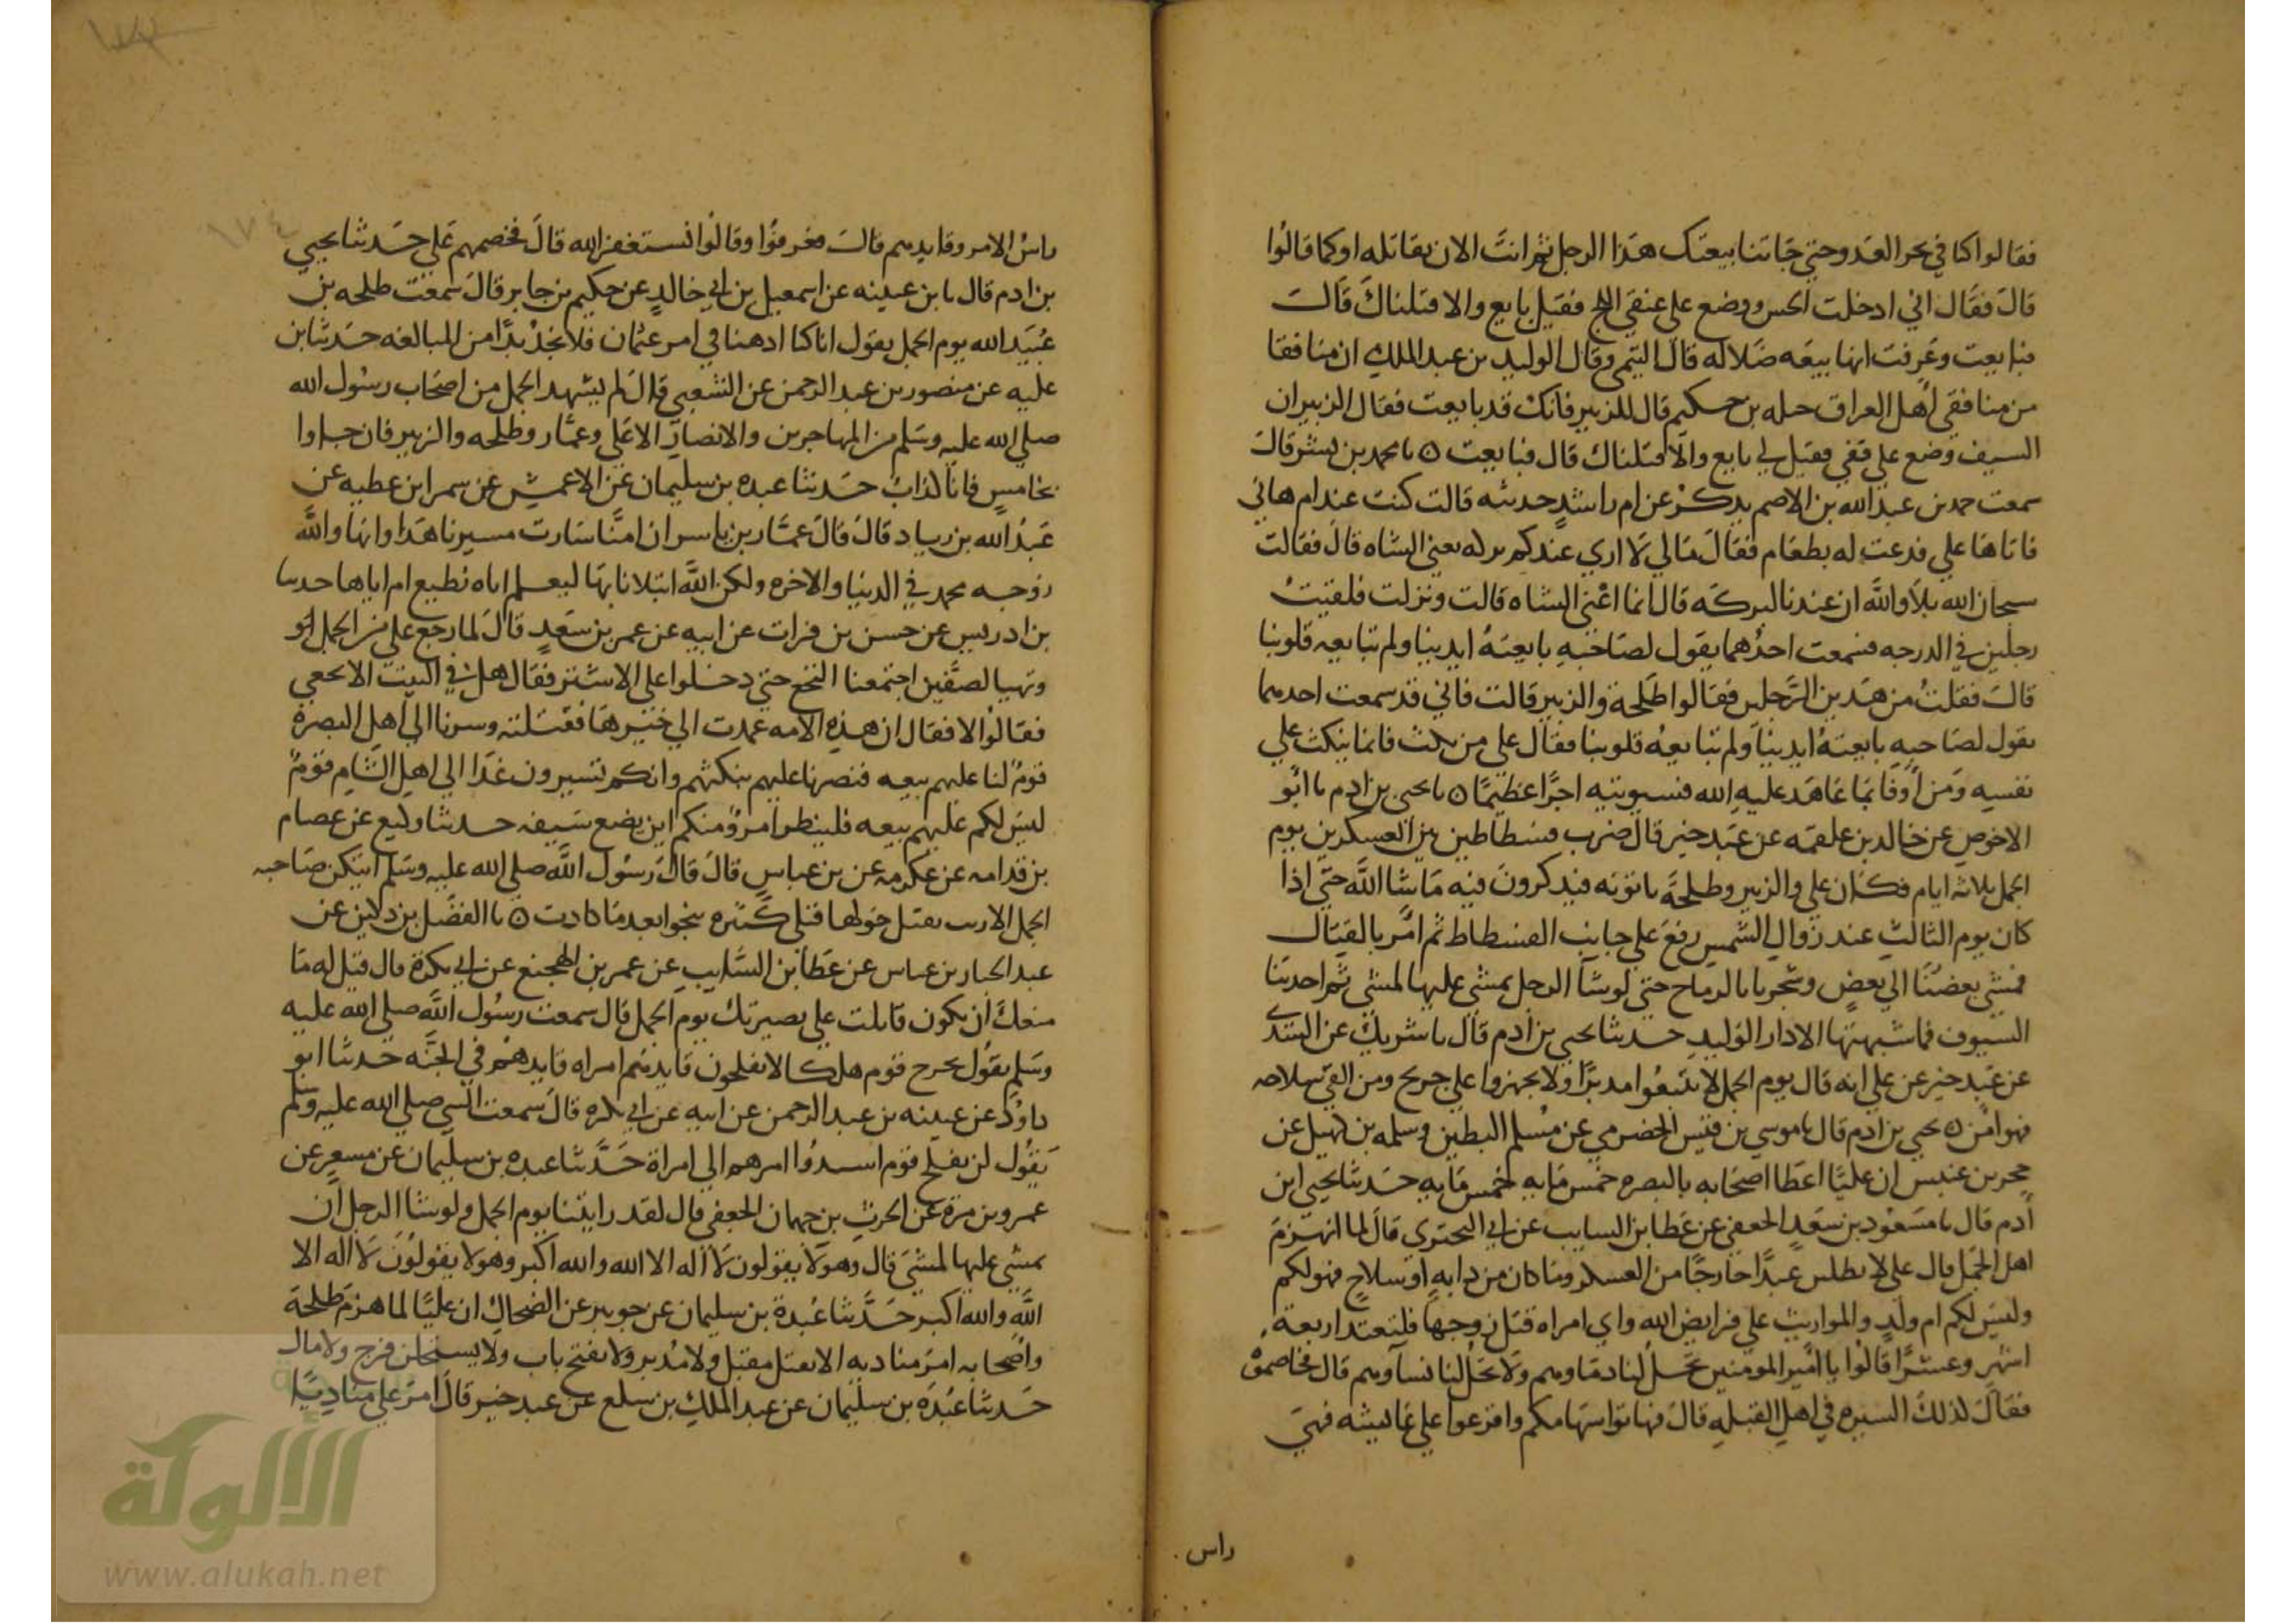 فقالوا كنا في نحر العدو حتى جاتنا بيعتك هذا الرجل ثم انت الان تقاتله او كما قالوا
قال فقال اني ادخلت الحس ووضع على عنقي اللج فقيل بايع والا قتلناك قال
فبايعت وعرفت انها بيعه ضلاله قال التيمي وقال الوليد بن عبد الملك ان منافقا
من منافقي اهل العراق جبله بن حكيم قال للزبير فانك قد بايعت فقال الزبير ان
السيف وضع على قفي فقيل لي بايع والا قتلناك قال فبايعت ه نا محمد بن بشر قال
سمعت حمد بن عبد الله بن الاصم يذكر عن ام راشد جدته قالت كنت عند ام هاني
فاتاها علي فدعت له بطعام فقال مالي لا اري عندكم بركه يعني الشاه قال فقالت
سبحان الله بلا والله ان عندنا لبركه قال انما اعني الشاه قالت ونزلت فلقيت
رجلين في الدرجه فسمعت احدهما يقول لصاحبه بايعته ايدينا ولم تبايعه قلوبنا
قالت فقلت من هذين الرجلين فقالوا طلحة والزبير قالت فاني قد سمعت احدهما
يقول لصاحبه بايعته ايدينا ولم تبايعه قلوبنا فقال علي من نكث فانما ينكث علي
نفسه ومن اوفا بما عاهد عليه الله فسيوتيه اجرا عظيما ه نا يحيى بن ادم نا ابو
الاحوص عن خالد بن علقمه عن عبد خير قال ضرب فسطاطين بين العسكرين يوم
الجمل ثلاثه ايام فكان علي والزبير وطلحة ياتونه فيذكرون فيه ما شا الله حتى اذا
كان يوم الثالث عند زوال الشمس رفع علي جانب الفسطاط ثم امر بالقتال
فمشى بعضنا الي بعض وشجرنا بالرماح حتى لو شا الرجل يمشي عليها لمشى ثم اخذتنا
السيوف فما شبهتها الا دار الوليد حدثنا يحيى بن ادم قال نا شريك عن السدي
عن عبد خير عن علي انه قال يوم الجمل لا تتبعوا مدبرا ولا تجهزوا علي جريح ومن القى سلاحه
فهو امن ه يحيى بن ادم قال نا موسي بن قيس الحضرمي عن مسلم البطين وسلمه بن كهيل عن
حجر بن عنبس ان عليا اعطا اصحابه بالبصره خمس مايه خمس مايه حدثنا يحيى ابن
ادم قال نا مسعود بن سعد الجعفي عن عطا بن السايب عن ابي البختري قال لما انهزم
اهل الجمل قال علي لا يطلبن عبدا خارجا من العسكر وما كان من دابه او سلاح فهو لكم
وليس لكم ام ولد والمواريث علي فرايض الله واي امراه قتل زوجها فلتعتد اربعة
اشهر وعشرا قالوا يا امير المومنين تحل لنا دماوهم ولا تحل لنا نساوهم قال فخاصموه
فقال لذلك السيره في اهل القبله قال فهاتوا سهامكم واقرعوا علي عايشه فهي
راس
راس الامر وقايدهم قال فعرفوا وقالوا نستغفر الله قال فخصمهم علي حدثنا يحيي
بن ادم قال نا بن عيينه عن اسمعيل بن ابي خالد عن حكيم بن جابر قال سمعت طلحه بن
عبيد الله يوم الجمل يقول انا كنا ادهنا في امر عثمان فلا نجد بدا من المبالغه حدثنا بن
عليه عن منصور بن عبد الرحمن عن الشعبي قال لم يشهد الجمل من اصحاب رسول الله
صلي الله عليه وسلم من المهاجرين والانصار الا علي وعمار وطلحه والزبير فان جاوا
بخامس فانا كذاب حدثنا عبده بن سليمان عن الاعمش عن سمر ابن عطيه عن
عبد الله بن زياد قال قال عمار بن ياسر ان امنا سارت مسيرنا هذا وانها والله
زوجه محمد في الدنيا والاخره ولكن الله ابتلانا بها ليعلم اياه نطيع ام اياها حدثنا
بن ادريس عن حسن بن فرات عن ابيه عن عمر بن سعد قال لما رجع علي من الجمل
وتهيا لصفين اجتمعنا النخع حتى دخلوا على الاشتر فقال هل في البيت الا نخعي
فقالوا لا فقال ان هذه الامه عمدت الي خيرها فقتلته وسرنا الي اهل البصرة
قوم لنا عليهم بيعه فنصرنا عليهم بنكثهم وانكم تسيرون غدا الي اهل الشام قوم
ليس لكم عليهم بيعه فلينظر امرؤ منكم اين يضع سيفه حدثنا وكيع عن عصام
بن قدامه عن عكرمه عن بن عباس قال قال رسول الله صلي الله عليه وسلم ايتكن صاحبه
الجمل الادبب يقتل حولها قتلي كثيره تنجوا بعد ما كادت ه نا الفضل بن دكين عن
عبد الجبار بن عباس عن عطا بن السايب عن عمر بن الهجنع عن ابي بكرة قال قيل له ما
منعك ان تكون قاتلت علي بصيرتك يوم الجمل قال سمعت رسول الله صلي الله عليه
وسلم يقول يخرج قوم هلكا لا يفلحون قايدهم امراه قايدهم في الجنه حدثنا ابو
داود عن عيينه بن عبد الرحمن عن ابيه عن ابي بكره قال سمعت النبي صلي الله عليه وسلم
يقول لن يفلح قوم اسندوا امرهم الي امراة حدثنا عبده بن سليمان عن مسعر عن
عمرو بن مرة عن الحرث بن جمهان الجعفي قال لقد رايتنا يوم الجمل ولو شا الرجل ان
يمشي عليها لمشي قال وهولا يقولون لا اله الا الله والله اكبر وهولا يقولون لا اله الا
الله والله اكبر حدثنا عبدة بن سليمان عن جويبر عن الضحاك ان عليا لما هزم طلحة
واصحابه امر مناديه الا يقتل مقبل ولا مدبر ولا يفتح باب ولا يستحلن فرج ولا مال
حدثنا عبده بن سليمان عن عبد الملك بن سلع عن عبد خير قال امر علي مناديا
الألوكة
www.alukah.net